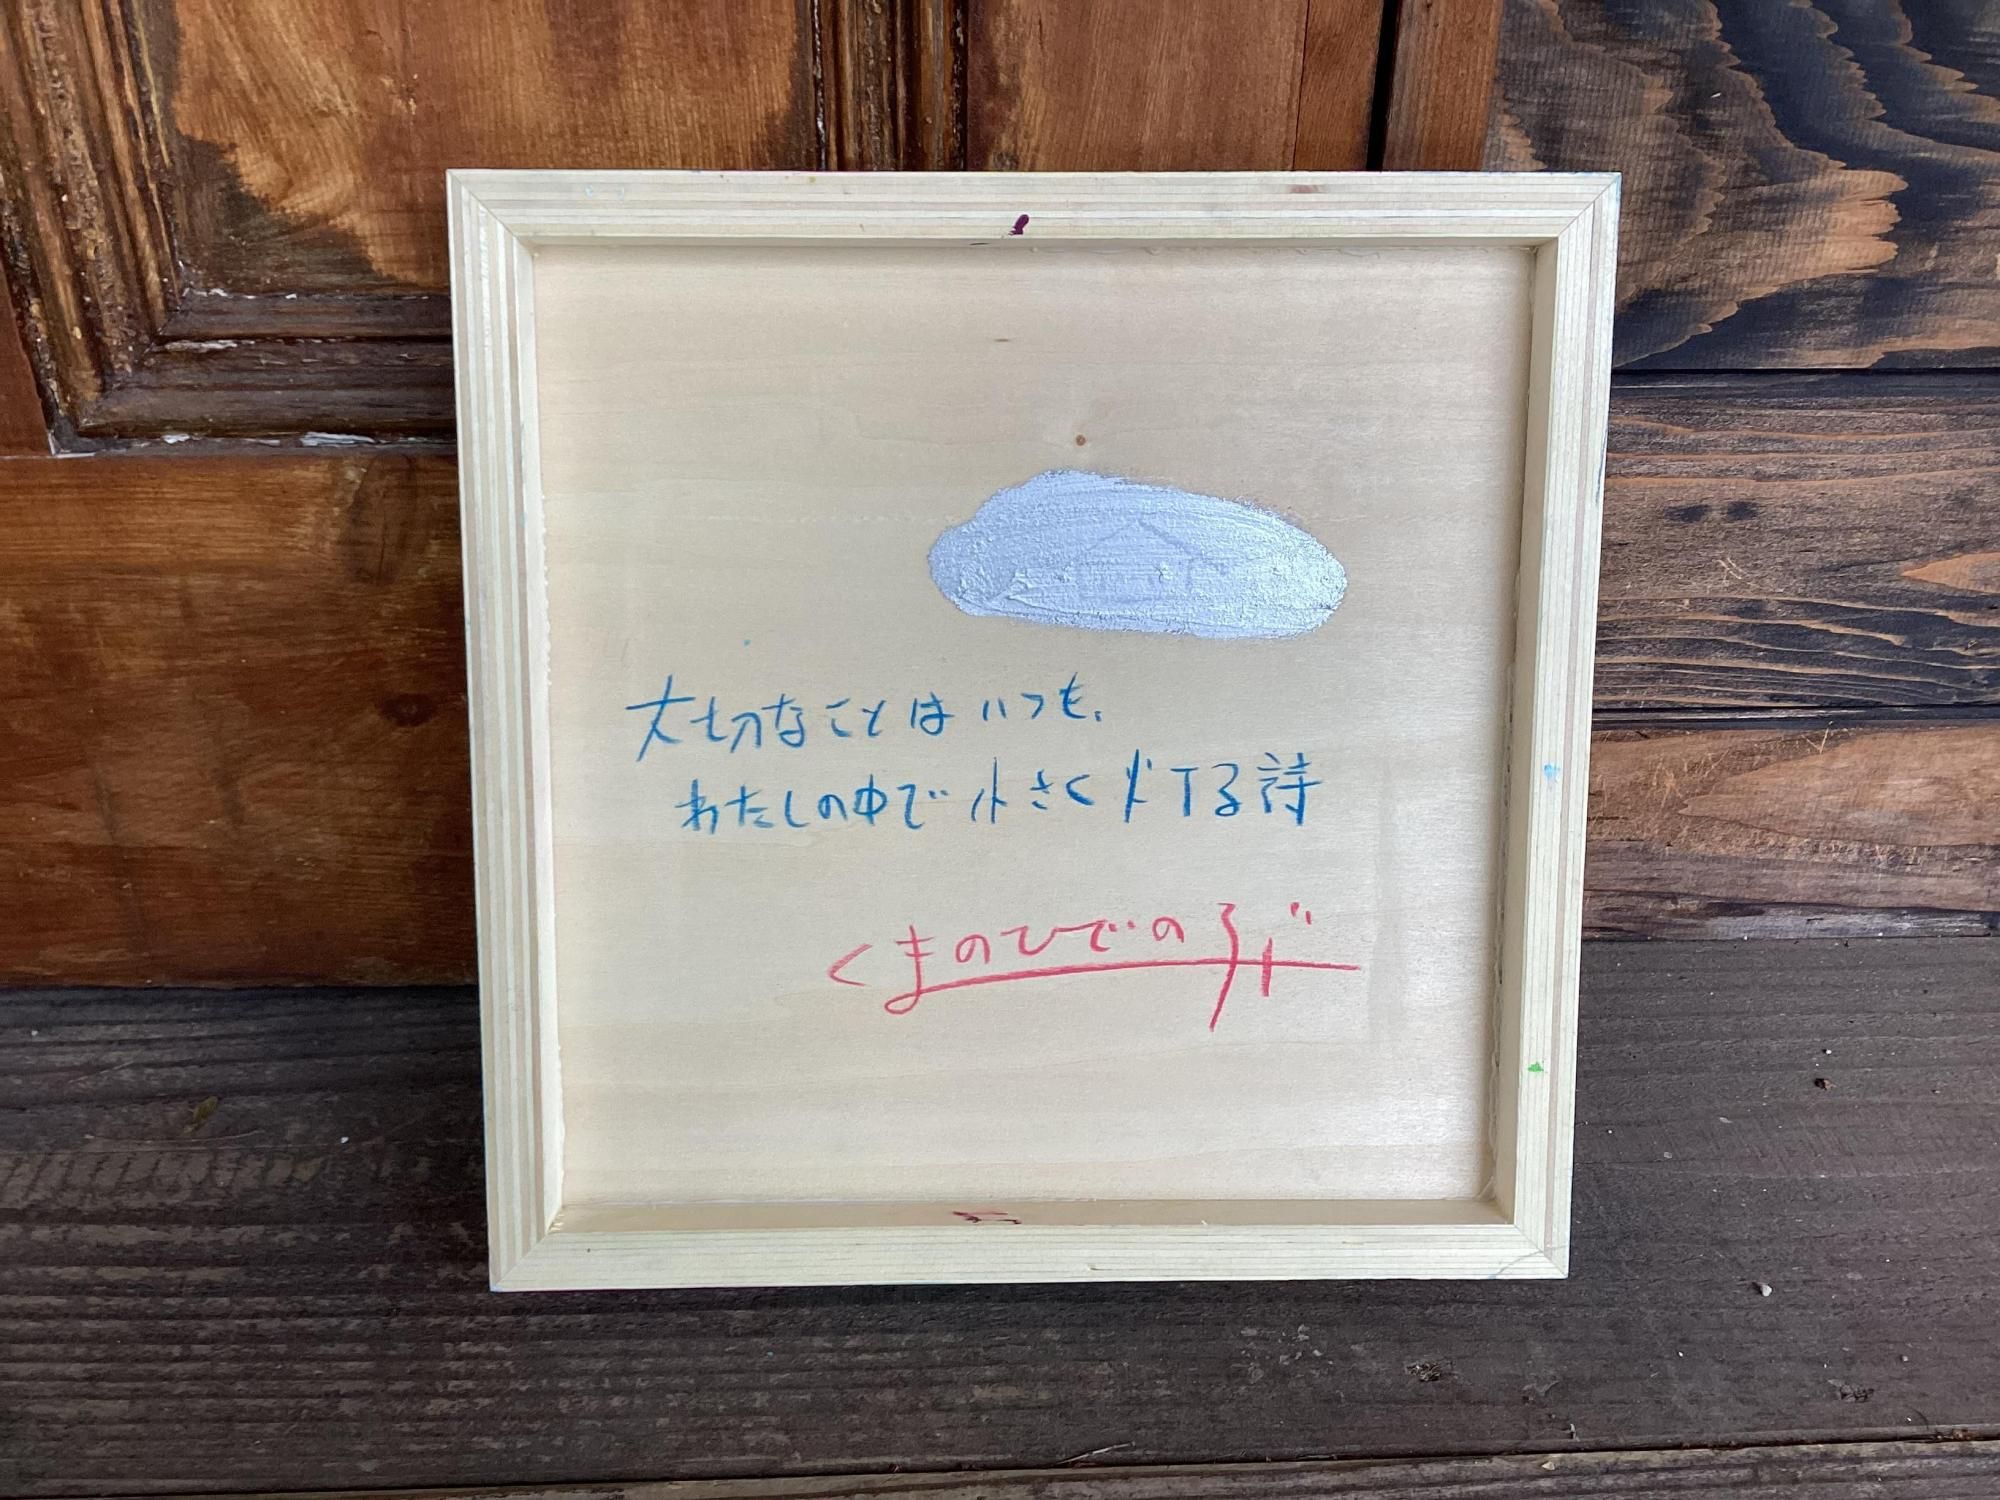 大切なことはいつも、
わたしの中で小さく灯る詩
くまのひでのぶ